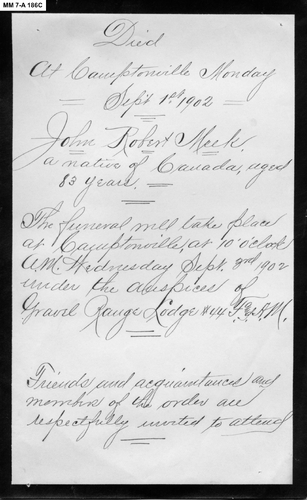 MM 7-A 186C
Died
At Camptonville Monday
Sept 1st 1902
John Robert Meek.
a native of Canada, aged
83 years.
The funeral will take place
at Camptonville, at 10 o'clock
A.M. Wednesday Sept. 3rd 1902
under the auspices of
Gravel Range Lodge #44 F. & A. M.
Friends and acquaintances and
members of the order are
respectfully invited to attend